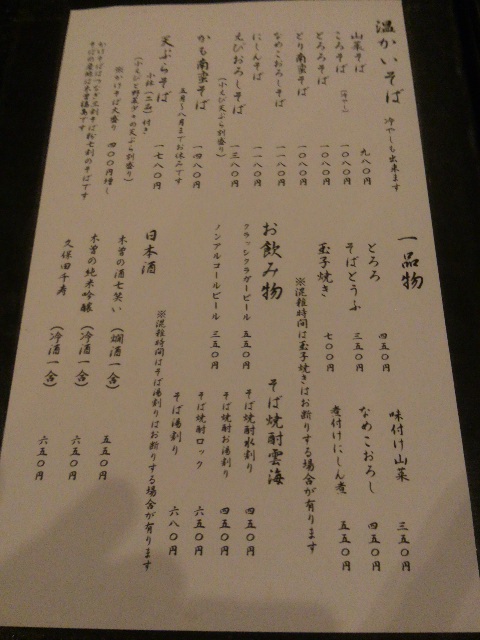 温かいそば 冷やしも出来ます
山菜そば 九八〇円
ころそば (冷や) 一〇八〇円
とろろそば 一〇八〇円
とり南蛮そば 一〇八〇円
なめこおろしそば 一一八〇円
にしんそば 一一八〇円
えびおろしそば 一三八〇円
(小えび天ぷら別盛り)
かも南蛮そば 一四八〇円
五月〜八月までお休みです
天ぷらそば 一七八〇円
小鉢(二品)付き
(小えびと野菜少々の天ぷら別盛り)
※かけそば大盛り 四〇〇円増し
かけそばはつなぎ三割そば粉七割のそばです
そばの産地は木曽福島です
一品物
とろろ 四五〇円
そばとうふ 三五〇円
玉子焼き 七〇〇円
味付け山菜 三五〇円
なめこおろし 四五〇円
煮付けにしん煮 五五〇円
※混雑時間は玉子焼きはお断りする場合が有ります
お飲み物
クラッシックラガービール 五五〇円
ノンアルコールビール 三五〇円
そば焼酎雲海
そば焼酎水割り 四五〇円
そば焼酎お湯割り 四五〇円
そば焼酎ロック 六五〇円
そば湯割り 六八〇円
※混雑時間はそば湯割りはお断りする場合が有ります
日本酒
木曽の酒七笑い (燗酒一合) 五五〇円
木曽の純米吟醸 (冷酒一合) 六五〇円
久保田千寿 (冷酒一合) 六五〇円